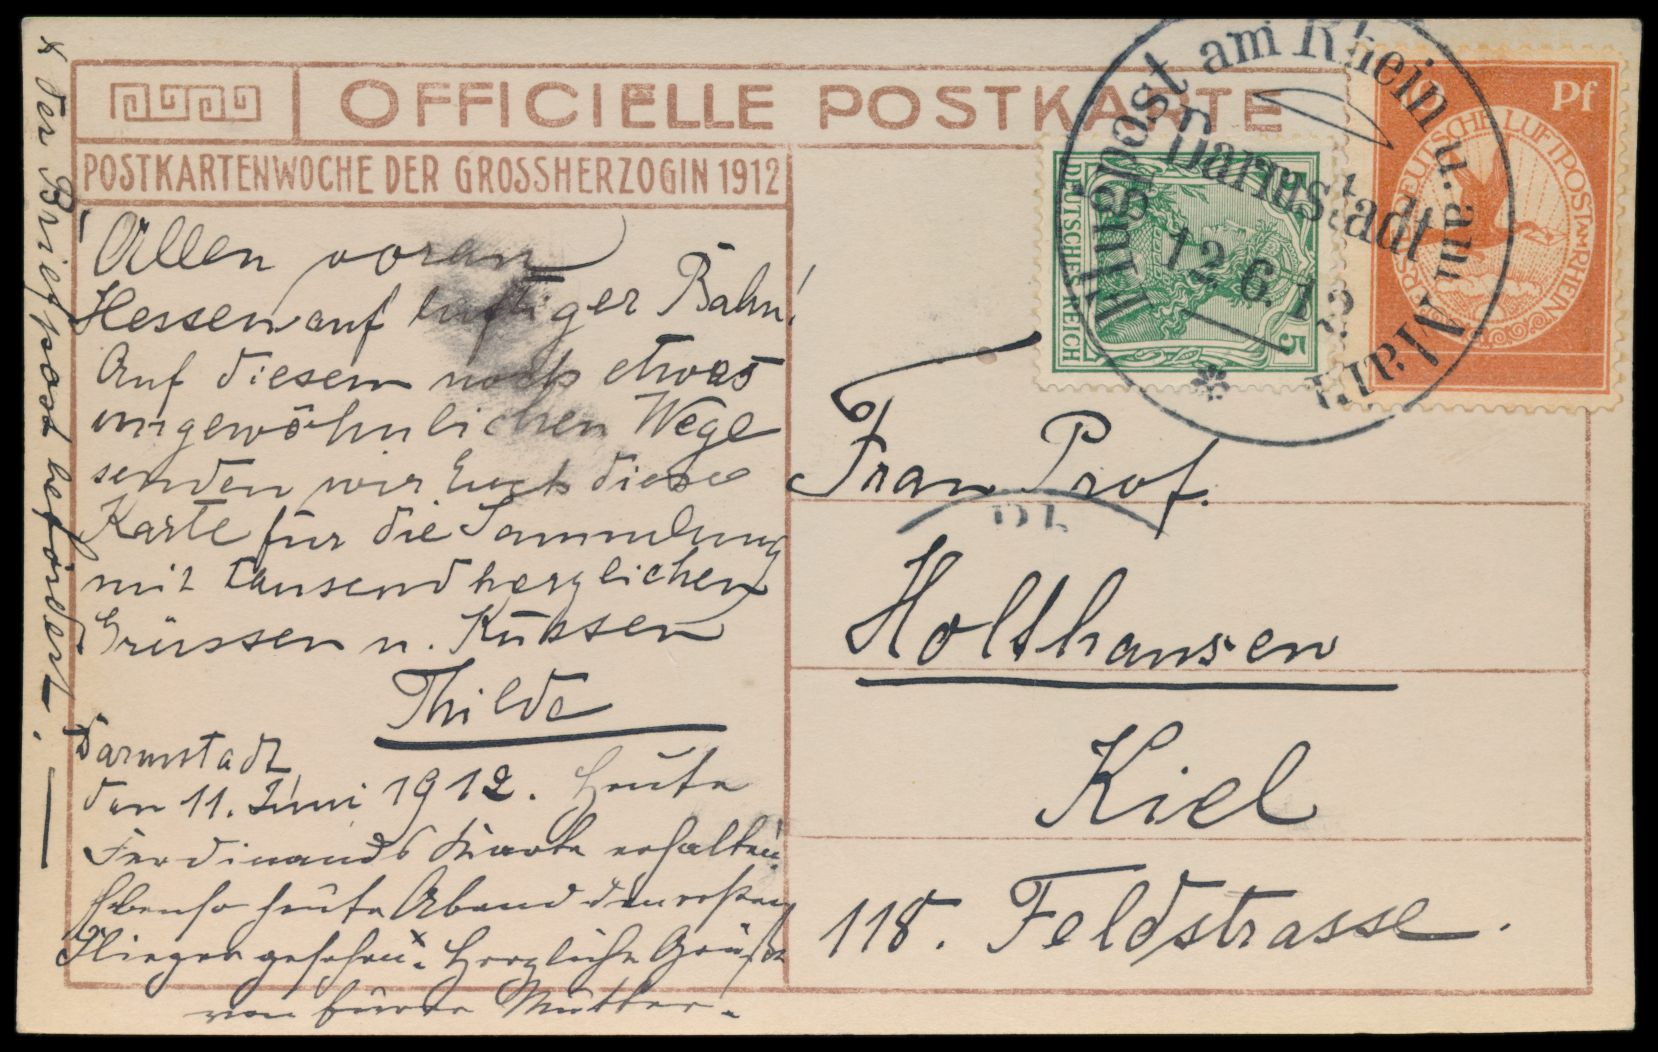 OFFICIELLE POSTKARTE
POSTKARTENWOCHE DER GROSSHERZOGIN 1912
Allen voran
Hessen auf luftiger Bahn!
Auf diesem noch etwas
ungewöhnlichen Wege
senden wir Euch diese
Karte für die Sammlung
mit tausend herzlichen
Grüssen u. Küssen
Thilde
Darmstadt
den 11. Juni 1912. Heute
Ferdinands Karte erhalten.
Ebenso heute Abend den ersten
Flieger gesehen.x Herzliche Grüße
von Eurer Mutter.
x der Briefpost befördert.
Flugpost am Rhein u. am Main
Darmstadt
12.6.12.
DEUTSCHES REICH
5
10 Pf
DEUTSCHE LUFTPOST AM RHEIN
Frau Prof.
Holthausen
Kiel
118. Feldstrasse.